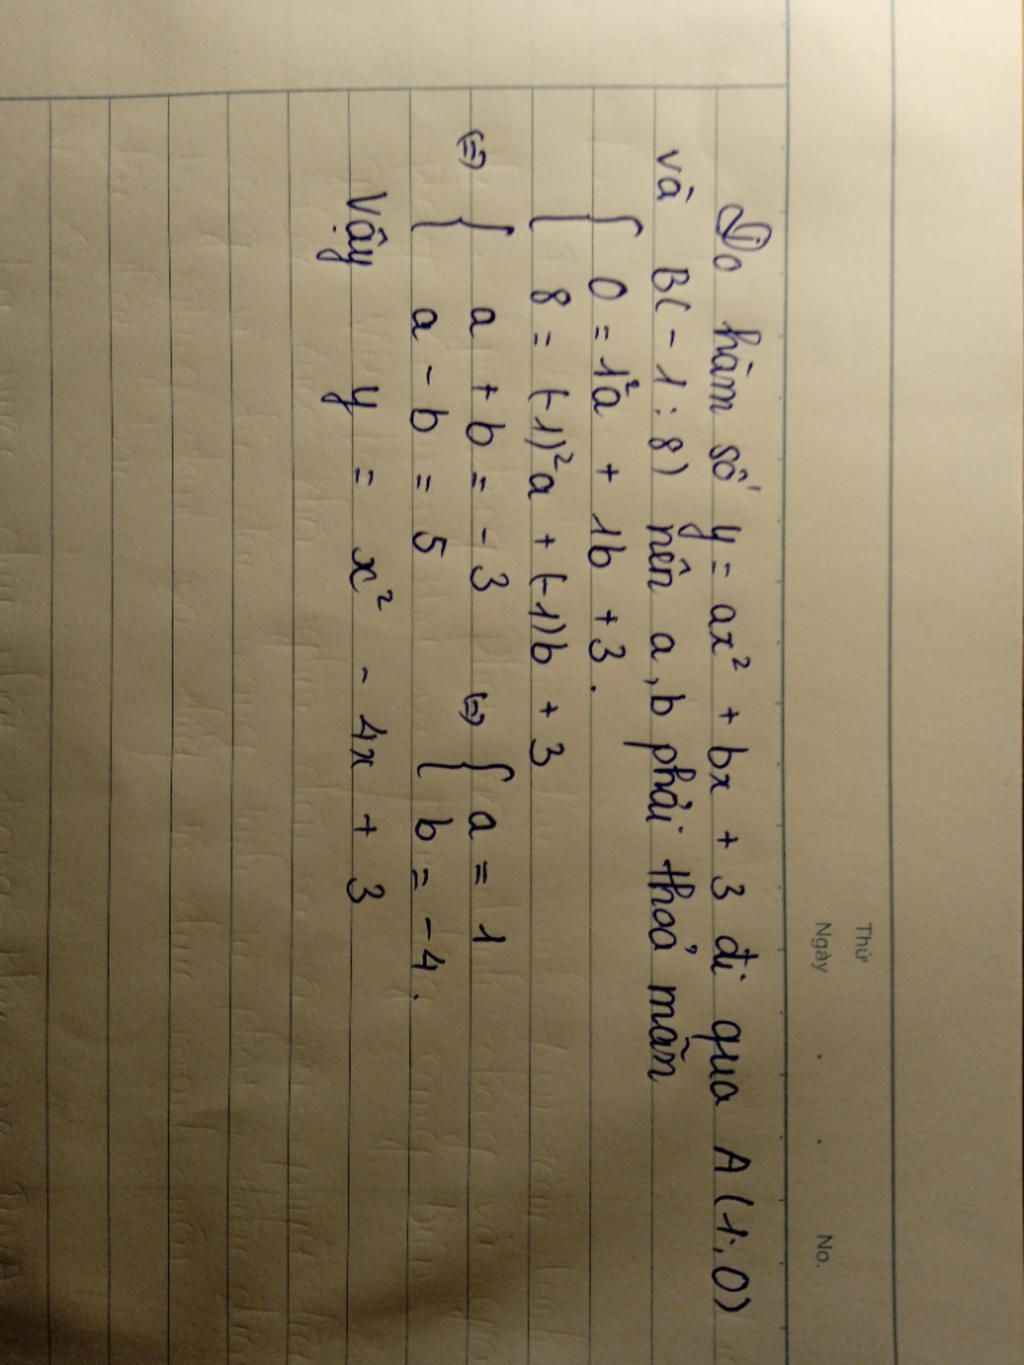 Thứ
Ngày . . No.
Do hàm số y = ax² + bx + 3 đi qua A (1; 0)
và B(-1; 8) nên a, b phải thoả mãn
{ 0 = 1²a + 1b + 3.
8 = (-1)²a + (-1)b + 3
(=) { a + b = -3 (=) { a = 1
a - b = 5 b = -4.
Vậy y = x² - 4x + 3